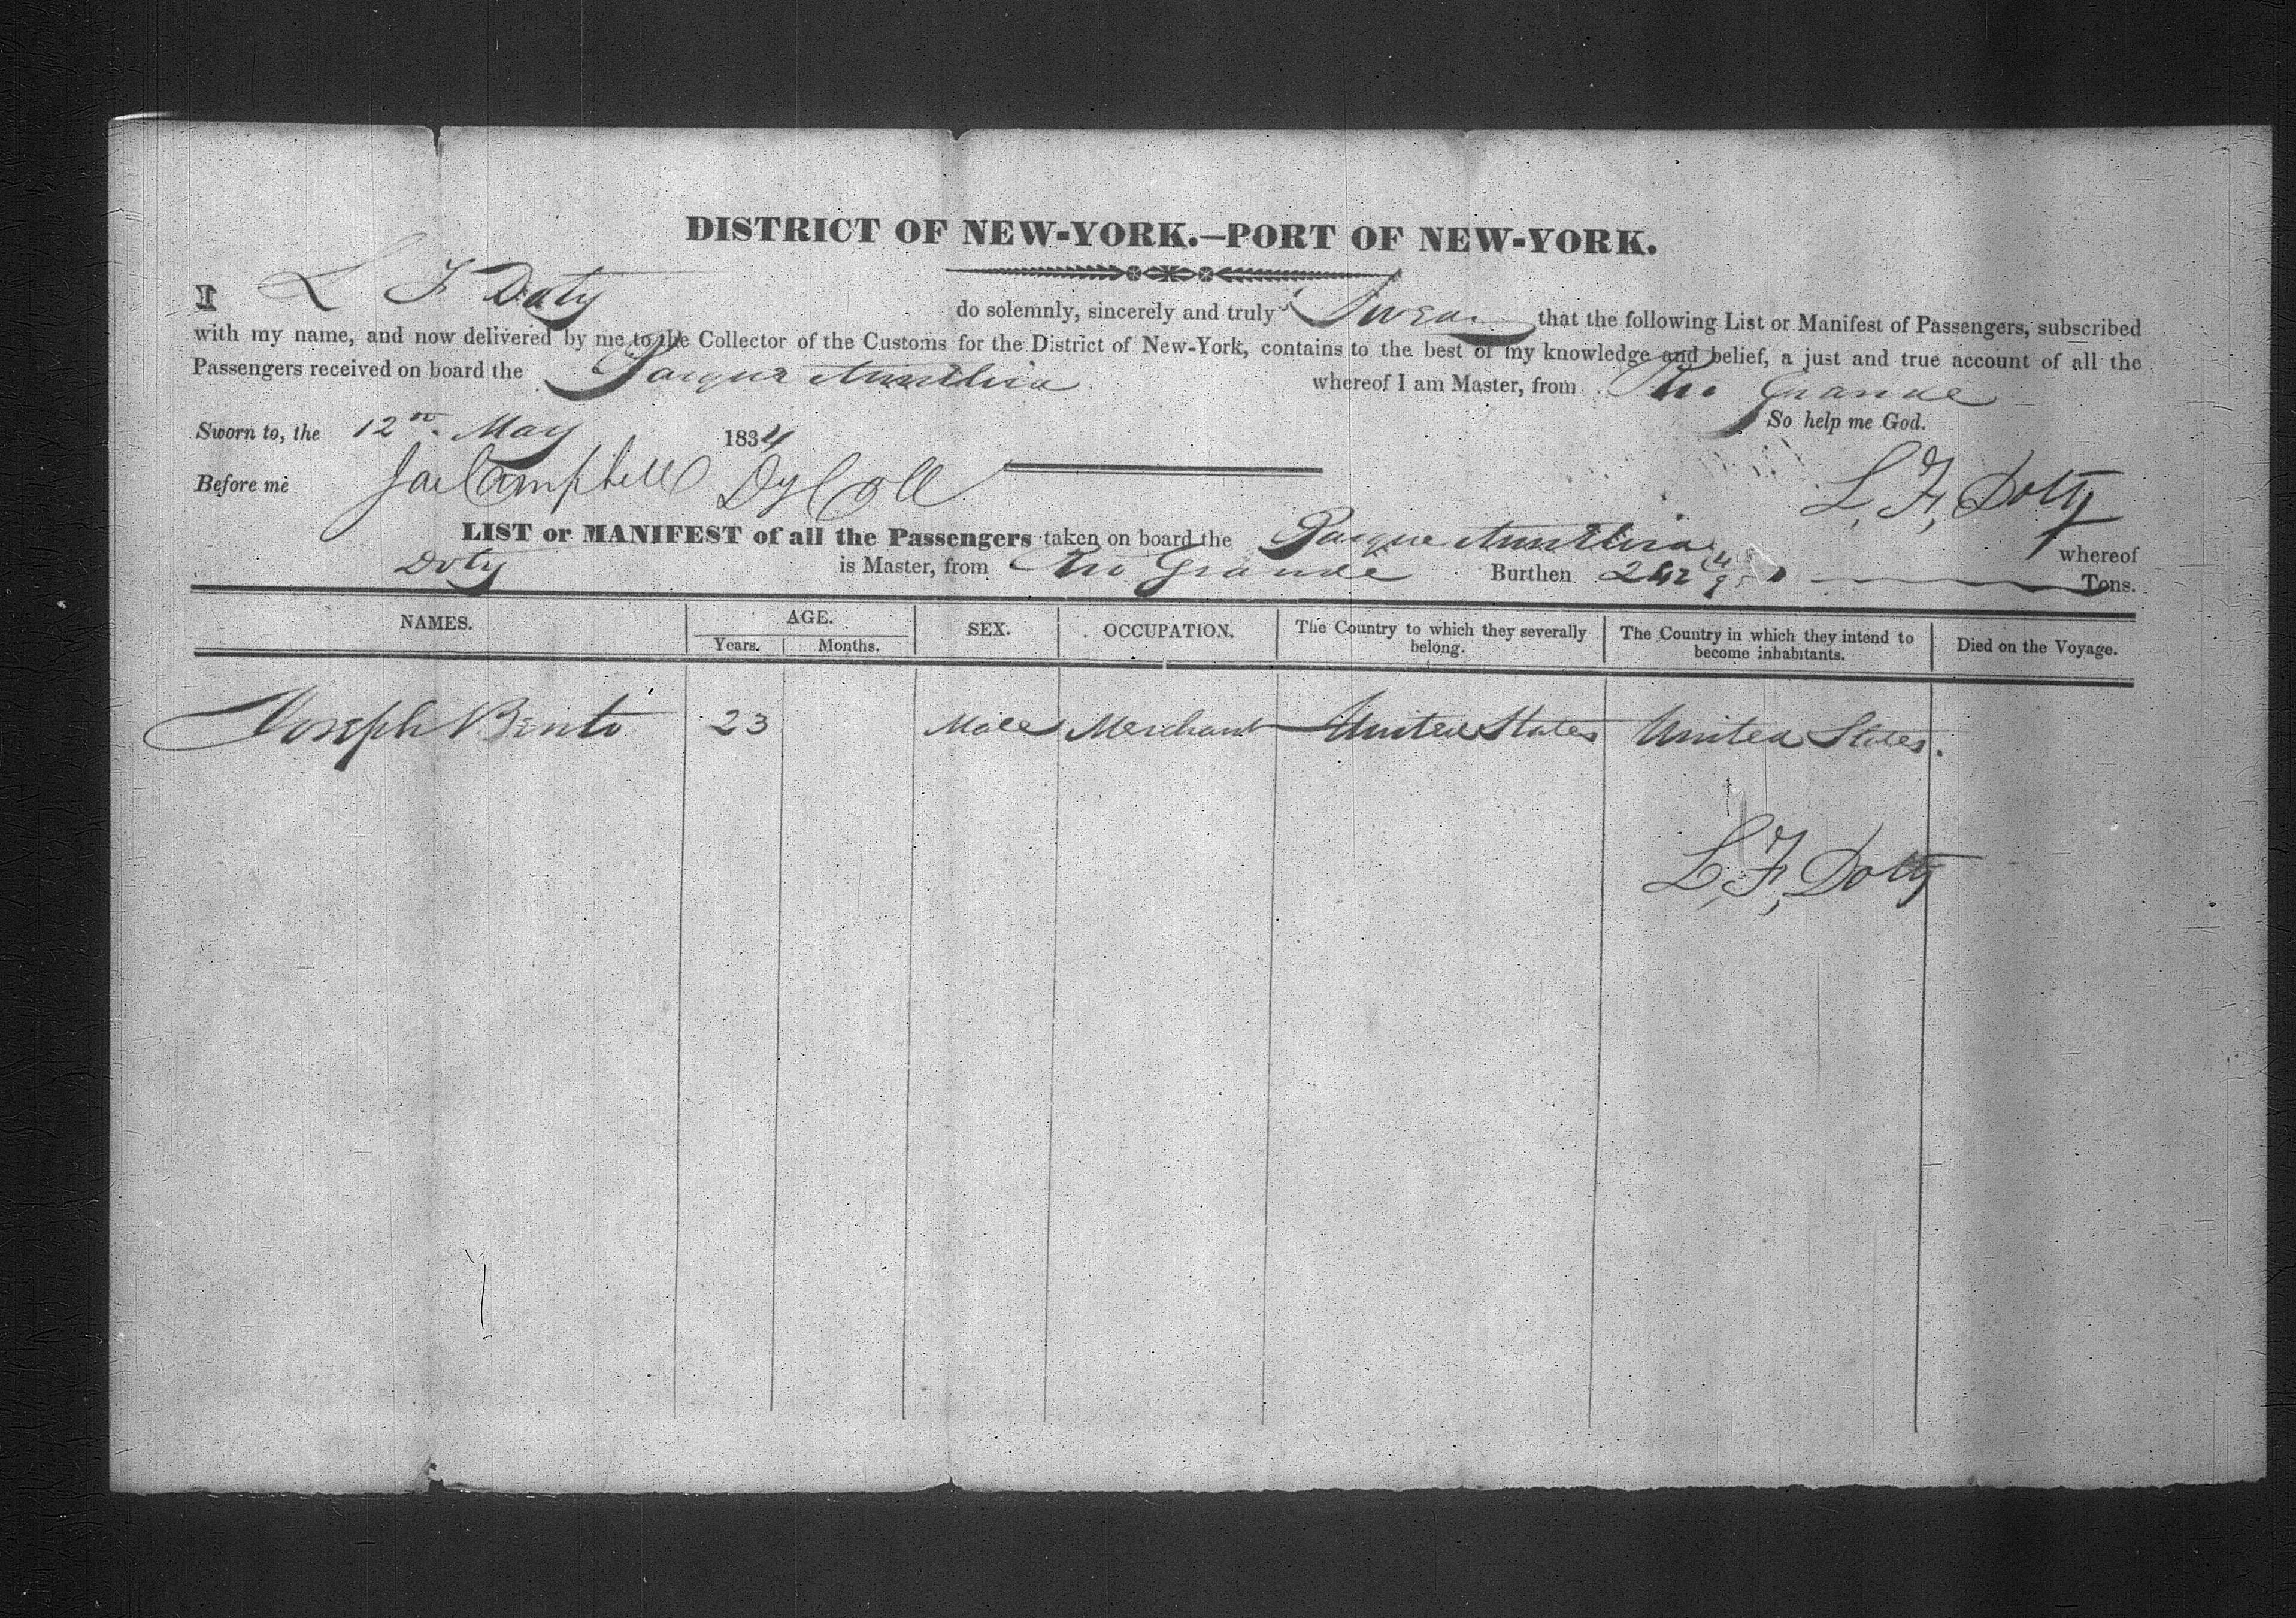 DISTRICT OF NEW-YORK.—PORT OF NEW-YORK.
I L F Doty do solemnly, sincerely and truly Swear that the following List or Manifest of Passengers, subscribed
with my name, and now delivered by me to the Collector of the Customs for the District of New-York, contains to the best of my knowledge and belief, a just and true account of all the
Passengers received on board the Barque whereof I am Master, from Rio Grande
So help me God.
Sworn to, the 12th May 1834
Before me Jas Campbell Dy Coll
L, F, Dotty
LIST or MANIFEST of all the Passengers taken on board the Barque whereof
Doty is Master, from Rio Grande Burthen 242 Tons.
NAMES. AGE. SEX. OCCUPATION. The Country to which they severally belong. The Country in which they intend to become inhabitants. Died on the Voyage.
Years. Months.
Joseph Bento 23 Male Merchant United States United States.
L, F, Dotty